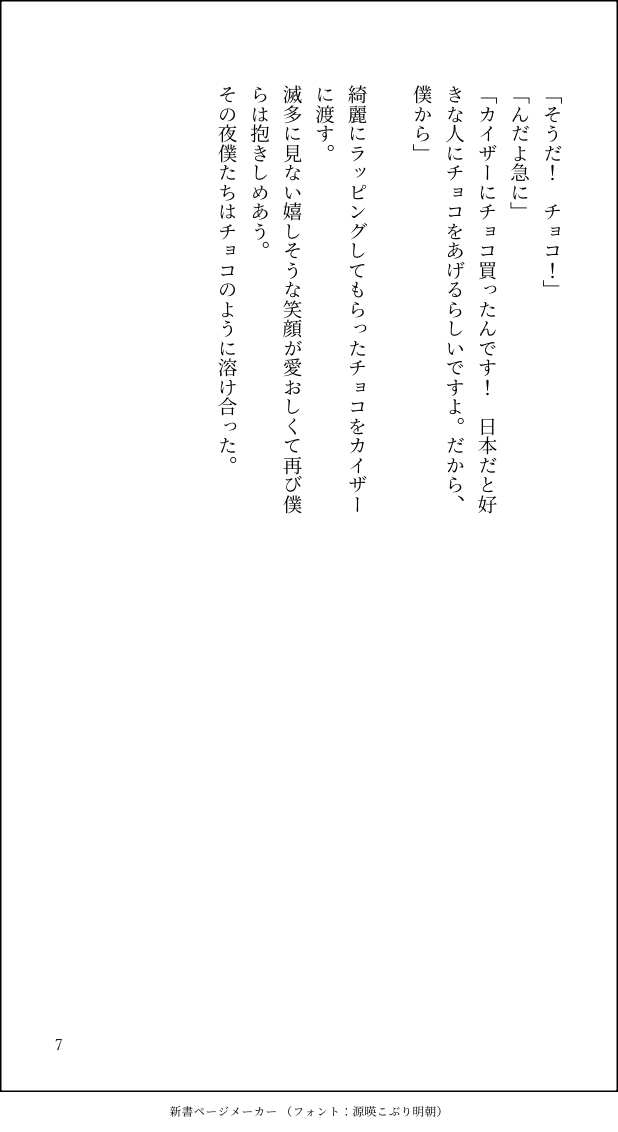 「そうだ！　チョコ！」
「んだよ急に」
「カイザーにチョコ買ったんです！　日本だと好
きな人にチョコをあげるらしいですよ。だから、
僕から」
綺麗にラッピングしてもらったチョコをカイザー
に渡す。
滅多に見ない嬉しそうな笑顔が愛おしくて再び僕
らは抱きしめあう。
その夜僕たちはチョコのように溶け合った。
7
新書ページメーカー（フォント：源暎こぶり明朝）